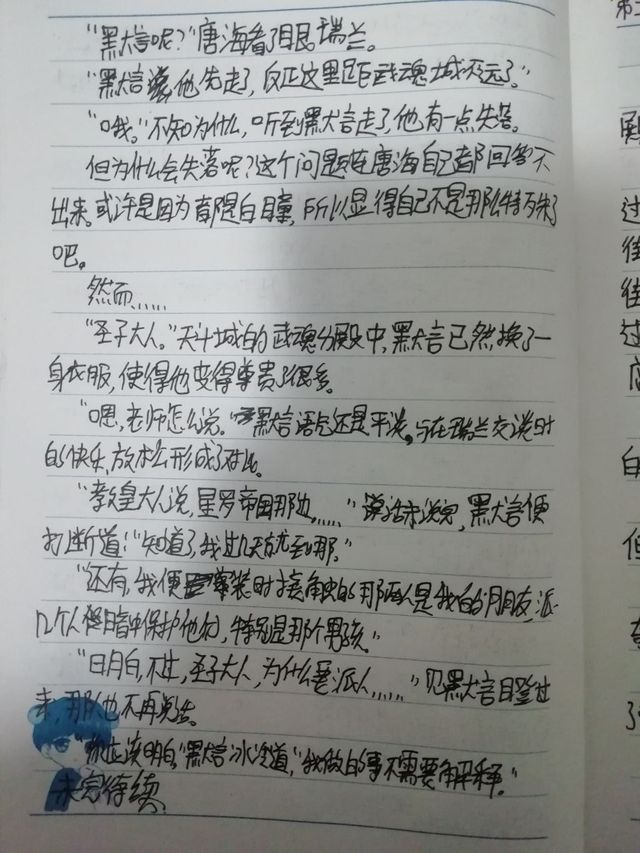 “黑大言呢？”唐海看了眼瑞兰。
“黑大言說，他先走了，反正这里距武魂城不远了。”
“哦。”不知为什么，听到黑大言走了，他有一点失落。
但为什么会失落呢？这个问题连唐海自己都回答不
出来。或许是因为都是白瞳，所以显得自己不是那么特殊了
吧。
然而……
“圣子大人。”天斗城的武魂分殿中，黑大言已然换了一
身衣服，使得他变得尊贵了很多。
“嗯，老师怎么说。”黑大言语气还是平淡，与在瑞兰交谈时
的快乐、放松形成了对比。
“教皇大人说，星罗帝国那边……”话未说完，黑大言便
打断道：“知道了，我过几天就到那。”
“还有，我便装时接触的那两人是我的朋友，派
几个人暗中保护他们，特别是那个男孩。”
“明白，不过，圣子大人，为什么要派人……”见黑大言目瞪过
来，那人也不再说话。
“你应该明白”黑大言冰冷道，“我做的事不需要解释。”
未完待续
第
过
往
往
过
应
白
但
了